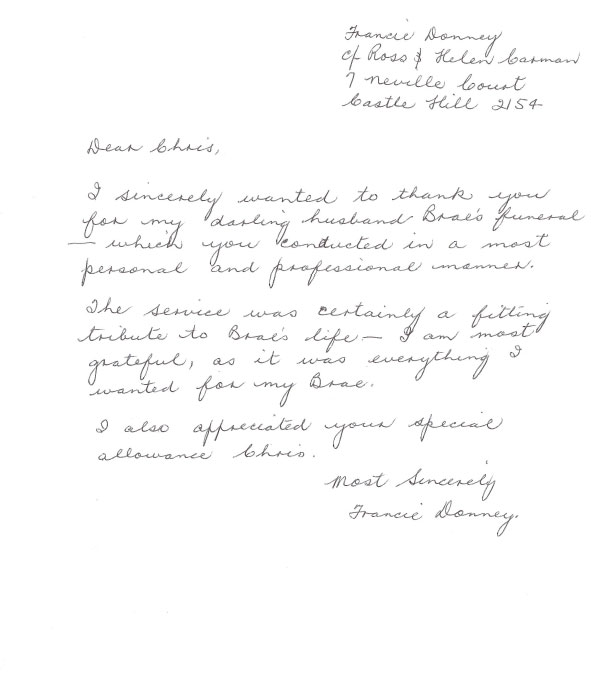 Francie Donney
c/ Ross & Helen Carman
7 Neville Court
Castle Hill 2154
Dear Chris,
I sincerely wanted to thank you
for my darling husband Brae's funeral
— which you conducted in a most
personal and professional manner.
The service was certainly a fitting
tribute to Brae's life — I am most
grateful, as it was everything I
wanted for my Brae.
I also appreciated your special
allowance Chris.
Most Sincerely
Francie Donney.